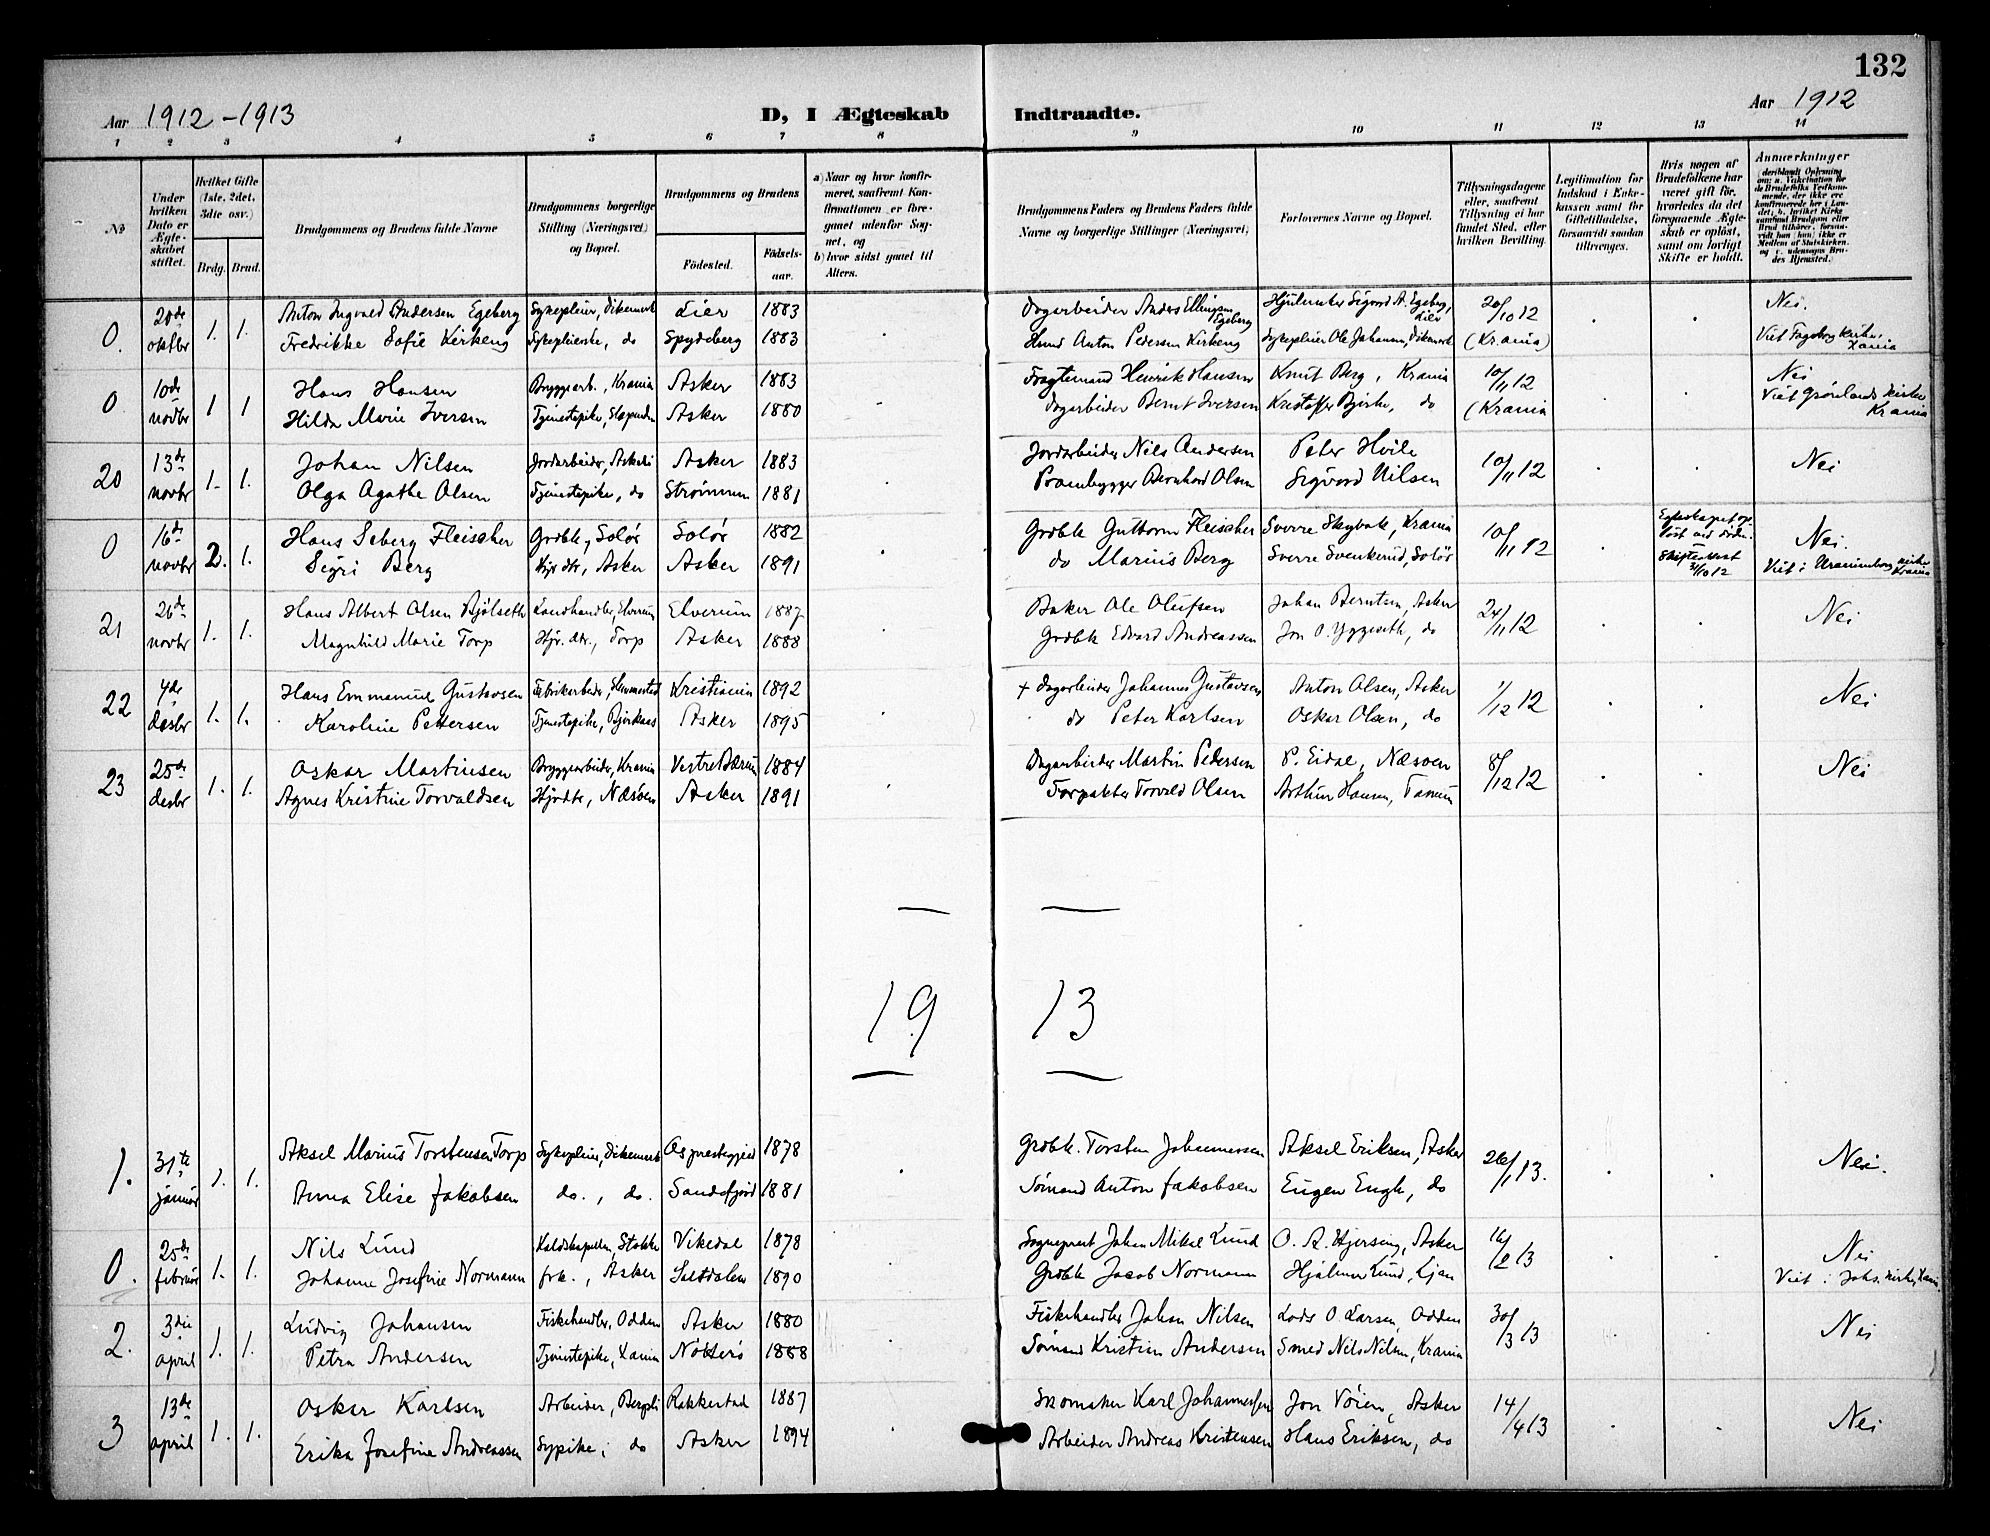 132
Aar 1912-1913
D, I Ægteskab Indtraadte.
Aar 1912
1 2 3 4 5 6 7 8 9 10 11 12 13 14
No
Under hvilken Dato er Ægteskabet stiftet.
Hvilket Gifte (1ste, 2det, 3die osv.)
Brdg. Brud.
Brudgommens og Brudens fulde Navne
Brudgommens borgerlige Stilling (Næringsvei) og Bopæl.
Brudgommens og Brudens
Fødested.
Fødselsaar.
a) Naar og hvor konfirmeret, saafremt Konfirmationen er foregaaet udenfor Sognet, og
b) hvor sidst gaaet til Alters.
Brudgommens Faders og Brudens Faders fulde Navne og borgerlige Stillinger (Næringsvei)
Forlovernes Navne og Bopæl.
Tillysningsdagene eller, saafremt Tillysning ei har fundet Sted, efter hvilken Bevilling.
Legitimation for Indskud i Enkekassen samt for Giftetilladelse, forsaavidt saadan tiltrænges.
Hvis nogen af Brudefolkene har været gift før, hvorledes da det foregaaende Ægteskab er opløst, samt om lovligt Skifte er holdt.
Anmerkninger (deriblandt Oplysning om: a. Vakcination for de Brudefolks Vedkommende, der ikke ere konfirmerede her i Landet; b. hvilket Kirkesamfund Brudgom eller Brud tilhører, forsaavidt han (hun) ikke er Medlem af Statskirken, og c. udensogns Brudes Hjemsted.)
0. 20de 1. 1. Anton Ingvald Andersen Egeberg Sykepleier, Dikemark Lier 1883 Dagarbeider Anders Ellingsen Egeberg Hjulmaker Sigvard A. Egeberg, Lier 20/10 12 Nei.
oktbr Fredrikke Sofie Kirkeng Sykepleierske, do Spydeberg 1883 Anton Pedersen Kirkeng Sykepleier Ole Johansen, Dikemark (Kr.ania) Viet Fagerborg kirke, Xania
0 10de 1 1 Hans Hansen Bryggearb., Krania Asker 1883 Henrik Hansen Knut Berg, Krania 10/11 12 Nei
novbr Hilda Marie Iversen Tjenestepike, Slependen Asker 1880 Dagarbeider Bernt Iversen Kristoffer Bjerke, do (Krania Viet Grønlands kirke Krania
20 13de 1. 1. Johan Nilsen Jordarbeider, Asker 1883 Jordarbeider Nils Andersen Peter Hvile 10/11 12 Nei
novbr Olga Agathe Olsen Tjenestepike, do Strømmen 1881 Prambygger Bernhard Olsen Sigvard Nilsen
0 16de 2. 1. Hans Seberg Fleischer Grdbk, Solør Solør 1882 Grdbk Guttorm Fleischer Sverre Krania 10/11 12 Nei.
novbr Sigri Berg Asker Asker 1891 do Marius Berg Sverre Svenkerud, Solør Skifteattest 31/10 12 Viet i Uranienborg kirke Krania
21 26de 1. 1. Hans Albert Olsen Bjølseth Landhandler, Elverum Elverum 1887 Baker Ole Olufsen Johan Berntsen, Asker 24/11 12 Nei
novbr Magnhild Marie Torp Torp Asker 1888 Grdbk Edvard Andreassen Jon O. Yggeseth, do
22 4de 1. 1. Hans Emmanuel Gustavsen Fabrikarbeider, Slemmestad Kristiania 1892 + dagarbeider Johannes Gustavsen Anton Olsen, Asker 1/12 12 Nei
desbr Karoline Pettersen Tjenestepike, Bjerkaas Asker 1895 do Peter Karlsen Oskar Olsen, do
23 25de 1. 1. Oskar Martinsen Bryggearbeider, Krania Vestre Bærum 1884 Dagarbeider Martin Pedersen P. Eidal, Næsøen 8/12 12 Nei
desbr Agnes Kristine Torvaldsen Næsøen Asker 1891 Forpakter Torvald Olsen Arthur Hansen, Tanum
19 13
1. 31te 1. 1. Aksel Marius Torstensen Torp Sykepleier, Dikemark As prestegjeld 1878 Grdbk. Torsten Johannessen Aksel Eriksen, Asker 26/1 13. Nei.
januar Anna Elise Jakobsen do., do. Sandefjord 1881 Sømand Anton Jakobsen Eugen Engh, do
0. 25de 1. 1. Nils Lund Kaldskapellan, Stokke Vikedal 1878 Sogneprest Johan Mikal Lund O. A. Hjersing, Asker 16/2 13 Nei
februar Johanne Josefine Normann frk., Asker Saltdalen 1890 Grdbk Jacob Normann Hjalmar Lund, Ljan Viet i Johs. kirke, Xania
2. 3die 1. 1. Ludvig Johansen Fiskehandler, Odden Asker 1880 Fiskehandler Johan Nilsen Lods O Larsen, Odden 30/3 13 Nei
april Petra Andersen Tjenestepike, Xania Nøtterø 1888 Sømand Kristian Andersen Smed Nils Nilsen, Krania
3 13de 1. 1. Oskar Karlsen Arbeider, Berpli Rakkestad 1887 Skomaker Karl Johannessen Jon Vøien, Asker 14/4 13 Nei
april Erika Josefine Andreassen Sypike, do Asker 1894 Arbeider Andreas Kristensen Hans Eriksen, do